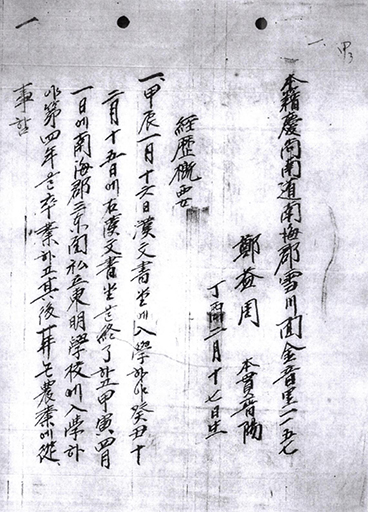 甲
一、
本籍慶尙南道南海郡雪川面金音里一一五七
鄭益周 本貫晋陽
丁酉二月十七日生
経歴概要
一、甲辰一月十六日漢文書堂에入學하야癸丑十
二月十五日에右漢文書堂을終了하고甲寅四月
一日에南海郡三東面私立東明學校에入學하
야第四年을卒業하고其後부터는農業에從
事함
一